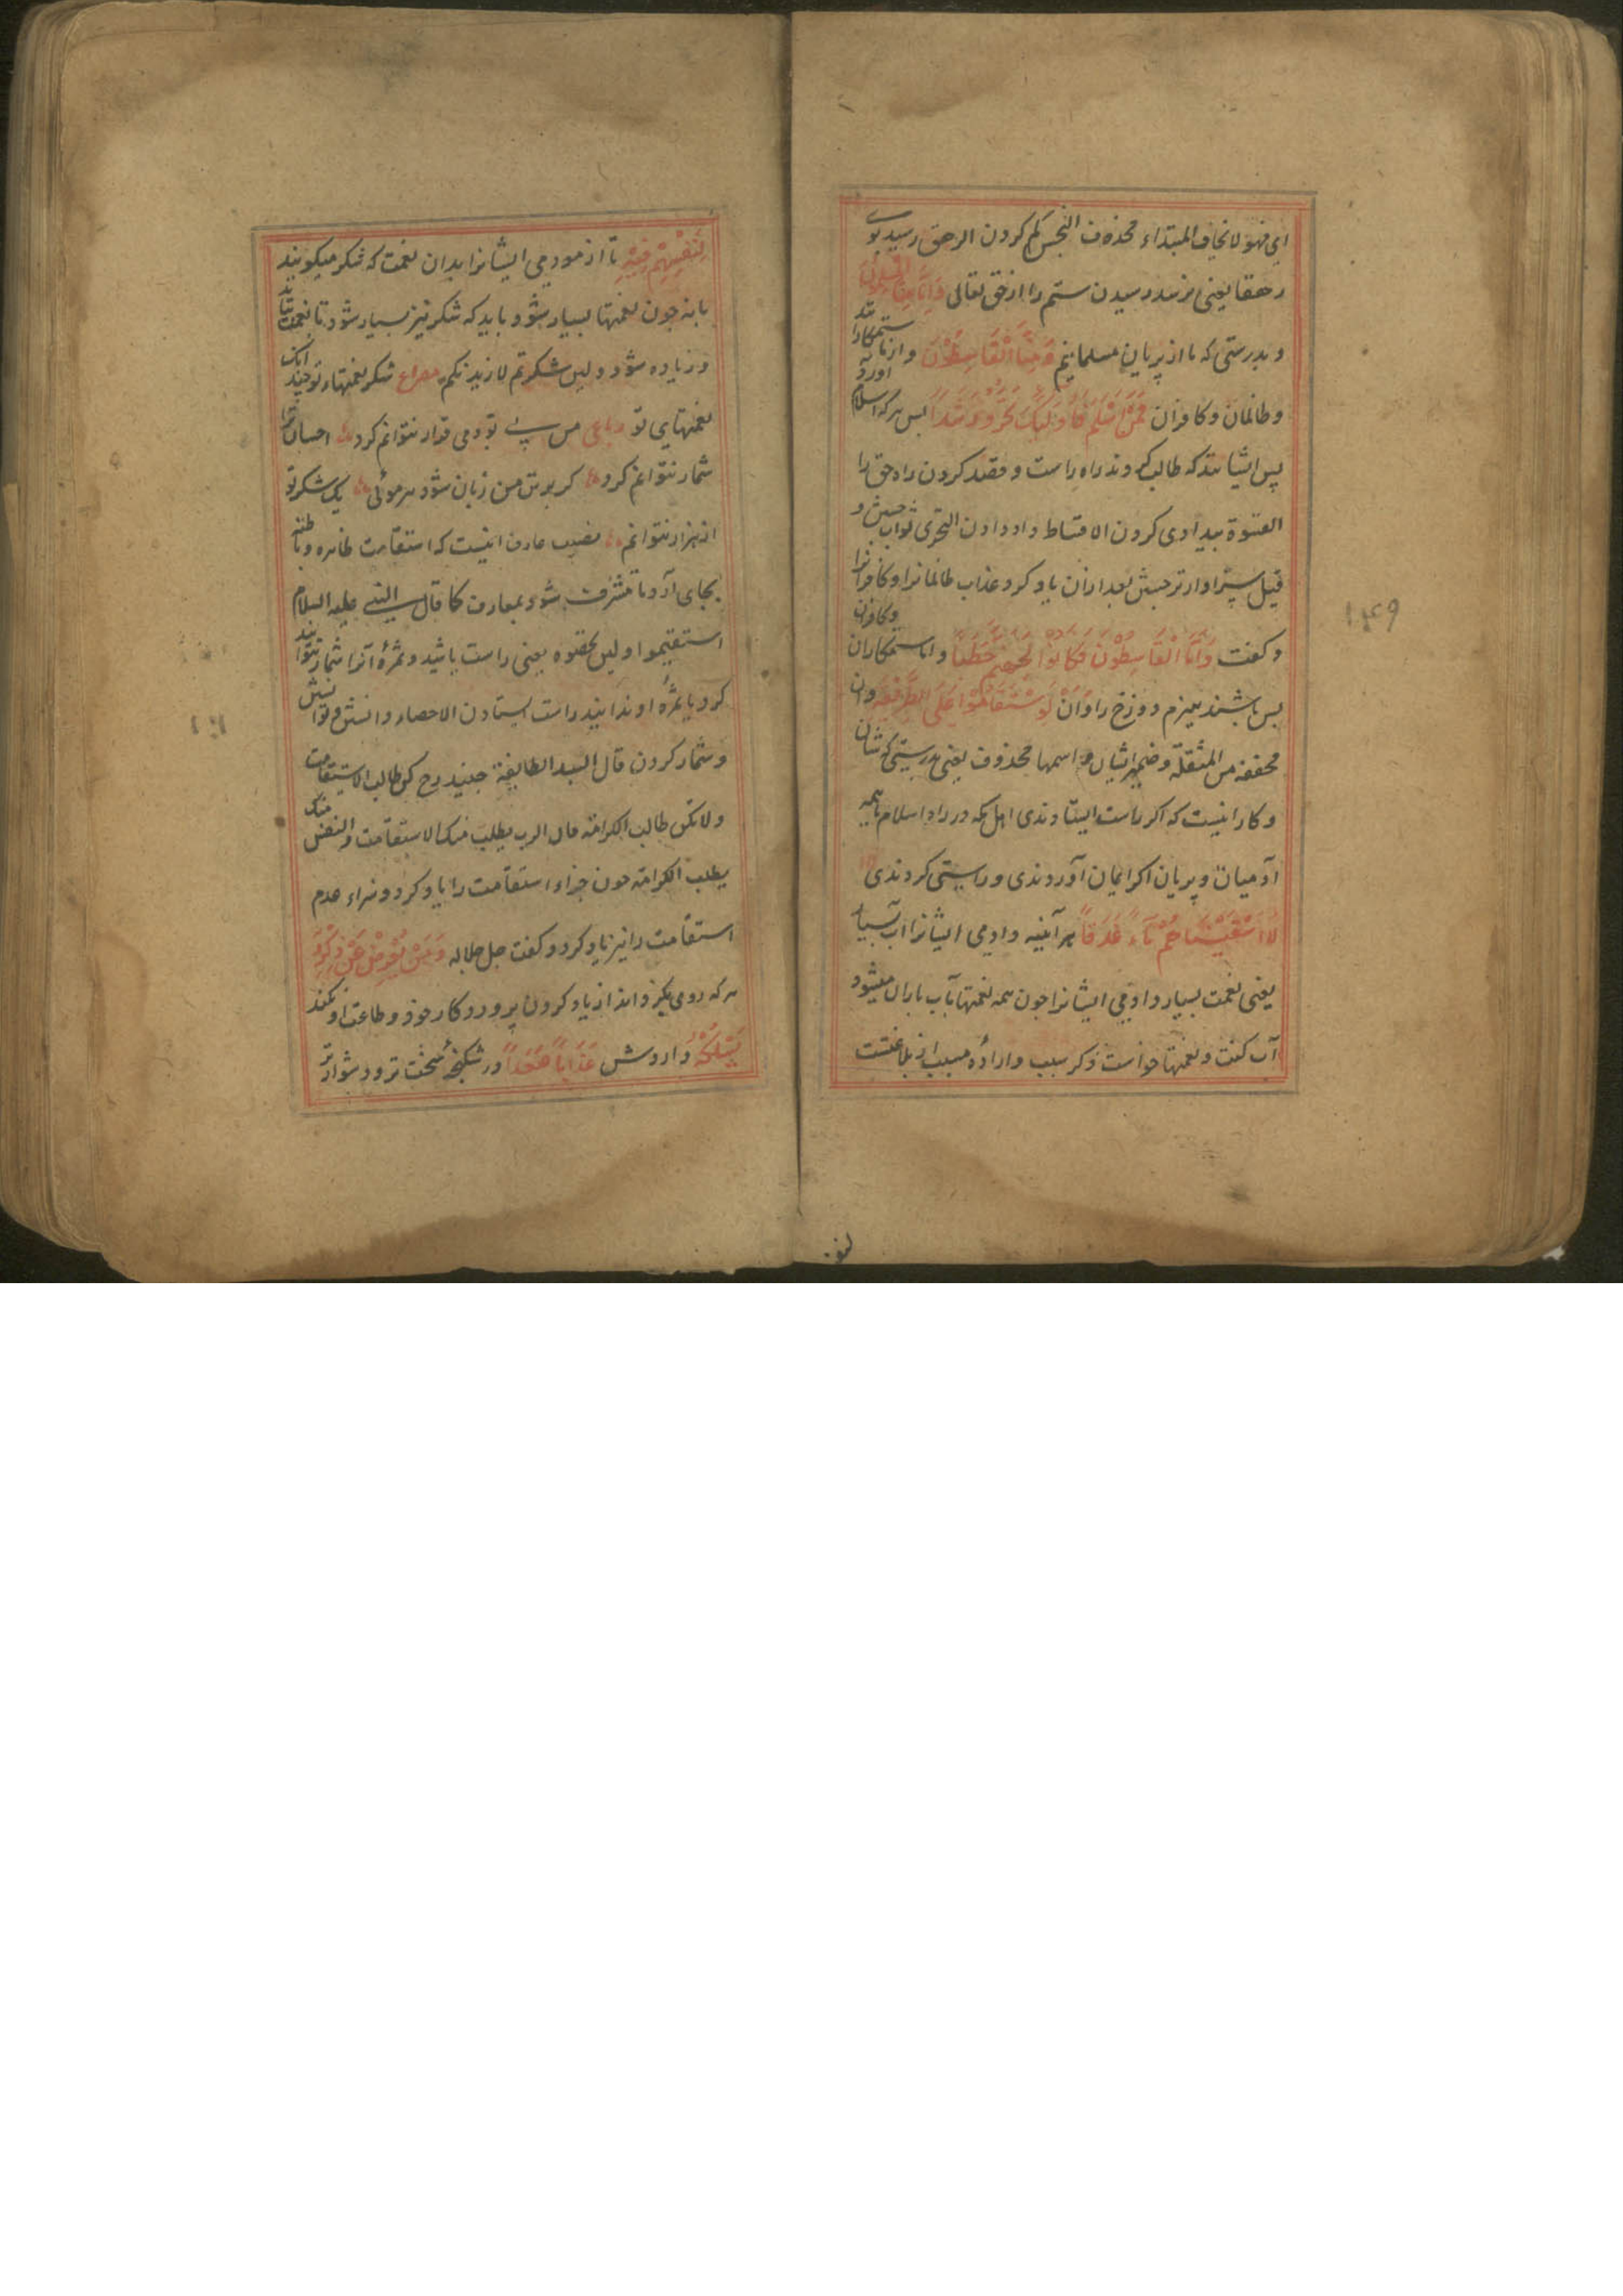 ای فهو لا یخاف المبتداء محذوف البخس کم کردن الرهق رسیدن
رهقا یعنی نرسد رسیدن ستم را از حق تعالی وَاَنَّا مِنَّا الْمُسْلِمُوْنَ
و بدرستی که ما از پریان مسلمانیم وَمِنَّا الْقَاسِطُوْنَ و از ما ستمکارانند
و ظالمان و کافران فَمَنْ اَسْلَمَ فَاُولٰئِكَ تَحَرَّوْا رَشَدًا پس هر که اسلام آورد
پس ایشانند که طلب کردند راه راست و قصد کردن راه حق را
القسوة بیدادی کردن الاقساط داد دادن التحری ثواب جستن و
قیل سزاوارتر جستن بعد ازان یاد کرد عذاب ظالمانرا و کافرانرا
و گفت وَاَمَّا الْقَاسِطُوْنَ فَكَانُوْا لِجَهَنَّمَ حَطَبًا و اما ستمکاران و کافران
پس باشند هیزم دوزخ را وَاَنْ لَوِ اسْتَقَامُوْا عَلَى الطَّرِيْقَةِ و ان
مخففه من المثقلة و ضمیر الشان و اسمها محذوف یعنی بدرستی که شان
و کار اینست که اگر راست ایستادندی اهل مکه در راه اسلام با همه
آدمیان و پریان اگر ایمان آوردندی و راستی کردندی
لَاَسْقَيْنَاهُمْ مَاءً غَدَقًا هر آئینه دادمی ایشانرا آب بسیار
یعنی نعمت بسیار دادمی ایشانرا چون همه نعمتها بآب باران میشود
آب گفت و نعمتها خواست ذکر سبب و اراده مسبب از بلاغتست
۱۴۹
لِنَفْتِنَهُمْ فِيْهِ تا ازمودمی ایشانرا بدان نعمت که شکر میگویند
یا نه چون نعمتها بسیار شود باید که شکر نیز بسیار شود تا نعمت
و زیاده شود و لئن شکرتم لازیدنکم مصراع شکر نعمتهاء تو چندانک
نعمتهای تو رباعی من بی تو دمی قرار نتوانم کرد احسان ترا
شمار نتوانم کرد گر بر تن من زبان شود هر موئی یک شکر تو
از هزار نتوانم نصیب عارف اینست که استقامت ظاهر و باطن
بجای آرد تا مشرف شود بمعارف کما قال النبی علیه السلام
استقیموا و لن تحصوه یعنی راست باشید و ثمره آنرا شمار نتوانید
کرد یا ثمره او ندانید راست ایستادن الاحصاء دانستن و توانستن
و شمار کردن قال السید الطایفة جنید رح کن طالب الاستقامت
و لا تکن طالب الکرامة فان الرب یطلب منک الاستقامت و النفس منک
یطلب الکرامة چون جزاء استقامت را یاد کرد و سزاء عدم
استقامت را نیز یاد کرد و گفت جل جلاله وَمَنْ يُعْرِضْ عَنْ ذِكْرِ رَبِّهِ
هر که روی بگرداند از یاد کردن پروردگار خود و طاعت او نکند
يَسْلُكْهُ در اردش عَذَابًا صَعَدًا در شکنجهٔ سخت تر و دشوارتر